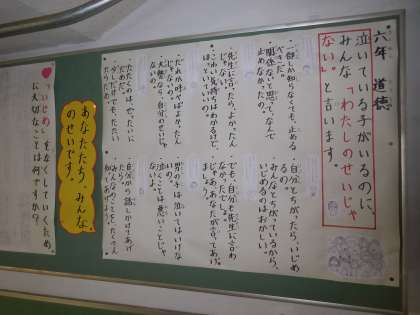 六年 道徳
泣いている子がいるのに、
みんな "わたしのせいじゃ
ない。" と言います。
・一部か知らなくても、止める
べきだ。
・関係ないと思って、なんで
止めなかったの。
・先生に言ったら、よかったん
じゃない。
・こわい気持ちはわかるけど、
・だれか呼べばよかったん
じゃない。
・大勢なら、自分のせいじゃ
ないの。
・たたくのは、ぜったいに
だめだ。
・少しでも、たたい
たのなら
・自分とちがったら、いじめ
るの。
・みんなとちがっているから、
いじめるのはおかしい。
・でも、自分も先生に言わ
なかったでしょ。
・じゃあ、あなたが言ってあげ
ましょう。
・男の子は泣いてはいけな
いの。
泣くことは悪いことじゃ
ないよ。
・自分から話しかけてあげ
て
あなたたち、みんな
のせいです。
「いじめ」をなくしていくため
に大切なことは何ですか？